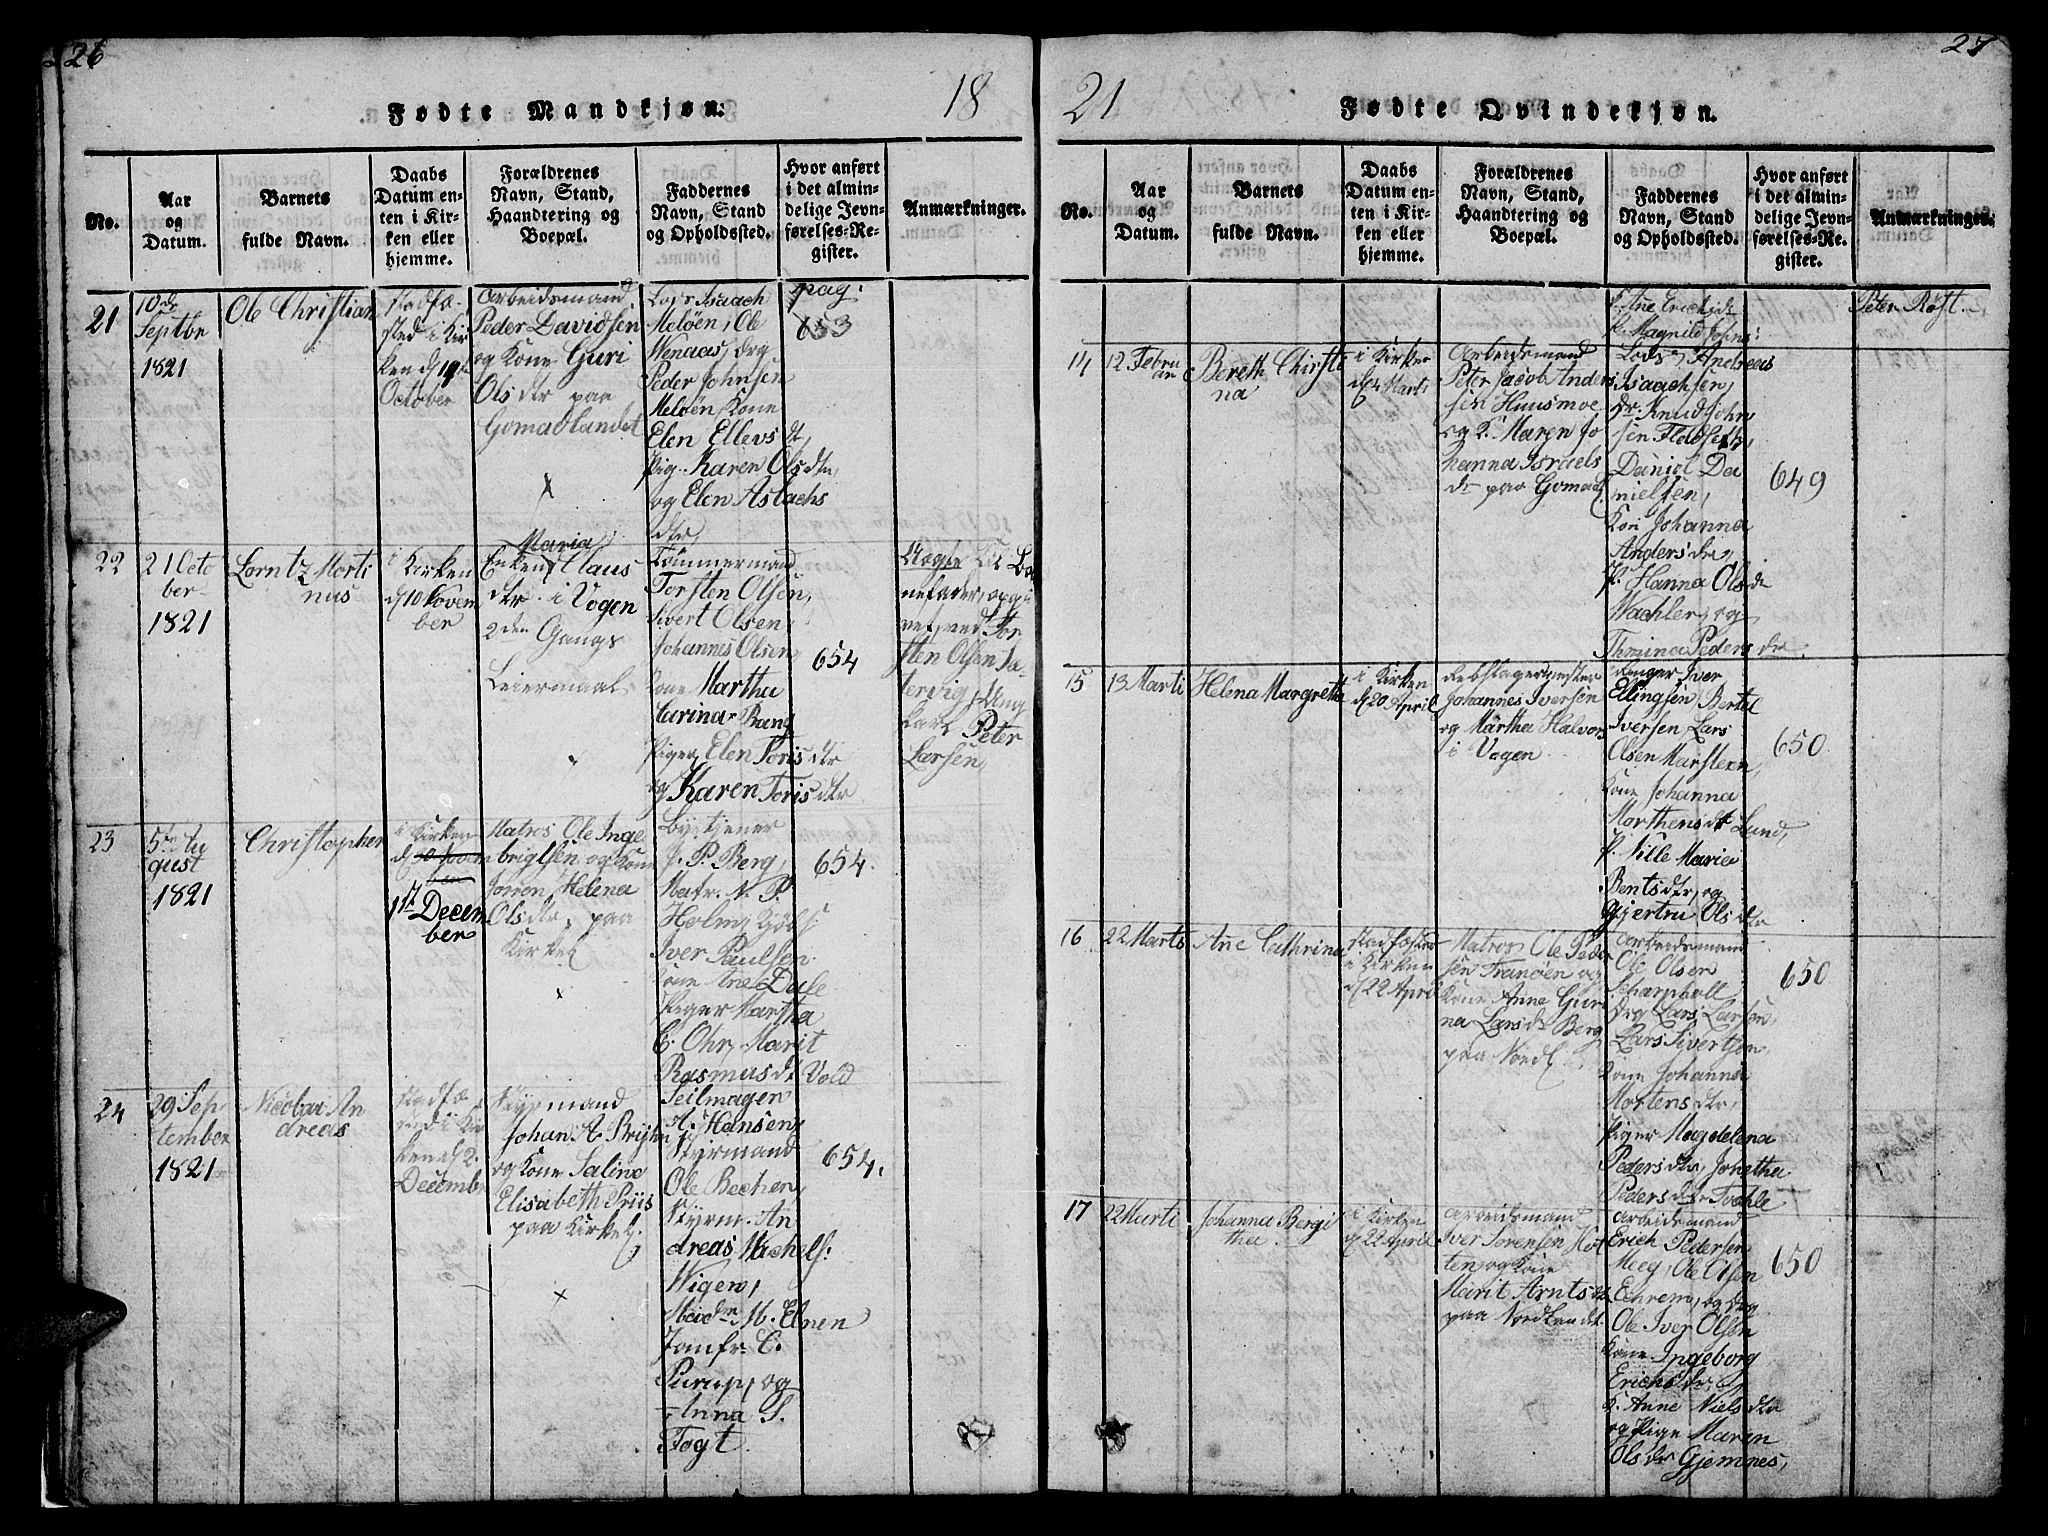 26
Fødte Mandkjøn.
18
No.
Aar
og
Datum.
Barnets
fulde Navn.
Daabs
Datum en-
ten i Kir-
ken eller
hjemme.
Forældrenes
Navn, Stand,
Haandtering og
Boepæl.
Faddernes
Navn, Stand
og Opholdssted.
Hvor anført
i det almin-
delige Jevn-
førelses-Re-
gister.
Anmærkninger.
21
10de
Septbr
1821
Ole Christian
stadfæ-
sted i Kir
ken d 19de
October
Arbeidsmand
Peder Davidsen
og Kone Guri
Olsdtr paa
Gomadlandet
x
Lods Isaach
Meløen, Ole
Wenaas, drg
Peder Johnsen
Meløen, Kone
Elen Ellevsdt,
Pig. Karen Olsdtr,
og Elen Aslachs
dtr,
pag:
653
22
21 Octo
ber
1821
Lorntz Morti
nus
i
Kirken
d 10 Novem
ber
Maria
Enken Claus
dtr i Vogen
2den Gangs
Leiermaal
Tømmermand
Torsten Olsen,
Sivert Olsen
Johannes Olsen,
Kone Martha
Carina Bang
Piger Elen Toris dtr
og Karen Toris dtr
654
Uægte Til Ba
nefader, opgi
vet, ved Tor
sten Olsen
Ung
karl Peter
Larsen,
23
5te Au
gust
1821
Christopher
i Kirken
1ste Decem
ber
Matros Ole Inge
brigtsen og Kone
Jorren Helena
Olsdtr, paa
Kirkel
x
Bytjener
J. P. Berg,
Matr. N. P.
Holm,
Iver Paulsen
Kone Ane Dale
Piger Martha
C. Ohr, Marit
Rasmusdt Vold
654.
24
29 Sep
tember
1821
Nicolai An
dreas
stadfæ
sted i Kir
ken d 2
Decembr
Styrmand
Johan A.
og Kone Salina
Elisabeth Priis
paa Kirkel.
x
Seilmager
A. Hansen,
Styrmand
Ole Bechen,
Styrm. An
dreas Wachels:
Wigem,
Mad M. Elnen
Jomfr. C.
Purup, og
Anna S.
Fogt.
654.
27
21
Fødte Qvindekjøn.
No.
Aar
og
Datum.
Barnets
fulde Navn.
Daabs
Datum en-
ten i Kir-
ken eller
hjemme.
Forældrenes
Navn, Stand,
Haandtering og
Boepæl.
Faddernes
Navn, Stand
og Opholdssted.
Hvor anført
i det almin-
delige Jevn-
førelses-Re-
gister.
Anmærkninger.
P. Ane Erichsdr
P. Magnild Johns:
Peter Røst.
14
12 Febru
ar
Bereth Chirsti
na
i Kirken
d 4 Marts
Arbeidsmand
Peter Jacob Anders
sen Huusmoe
og K. Maren Jo
hanna Israels
dr paa Gomad
Lods, Andreas
Isaachsen,
Dr. Knud John
sen Fladseth,
Daniel Da
nielsen,
Kon Johanna
Anders dr,
P. Hanna Olsdr
Wachler, og
Thrinna Peders dr.
649
15
13 Marti
Helena Margretha
i Kirken
d 20 April
Rebslagermester
Johannes Iversen
og Martha Halvors
i Vagen
Iver
Ellingsen Bertel
Iversen Lars
Olsen Marstein,
Kone Johanna
Morthensdt Lund,
P. Sille Maria
Bentsdtr, og
Gjertru Olsdtr
650
16
22 Marts
Ane Cathrina
stadfæsted
i Kirken
d 22 April
Matros Ole Peder
sen Franøen og
Kone Anne Gur
na Larsdr Berg
paa Nordl.
Arbeidsmand
Ole Olsen
Scharpholl
Drg Lars Larsen,
Lars Sivertsen,
Kone Johanna
Mortensdtr,
Piger Magdelena
Pedersdtr, Jonetha
Pedersdtr Tvehle
650
17
22 Marti
Johanna Bergi
tha
i Kirken
d 22 April
Arbeidsmand
Iver Sørensen Hol
ten og Kone
Marit Arntsdr
paa Nordlandet
Arbeidsmand
Erich Pedersen
Meeg, Ole Olsen
Echrem, og drg
Ole Iver Olsen
Kone Ingeborg
Erichsdr,
K. Anne Nielsdtr
og Pige Maren
Olsdr Gjemnes,
650